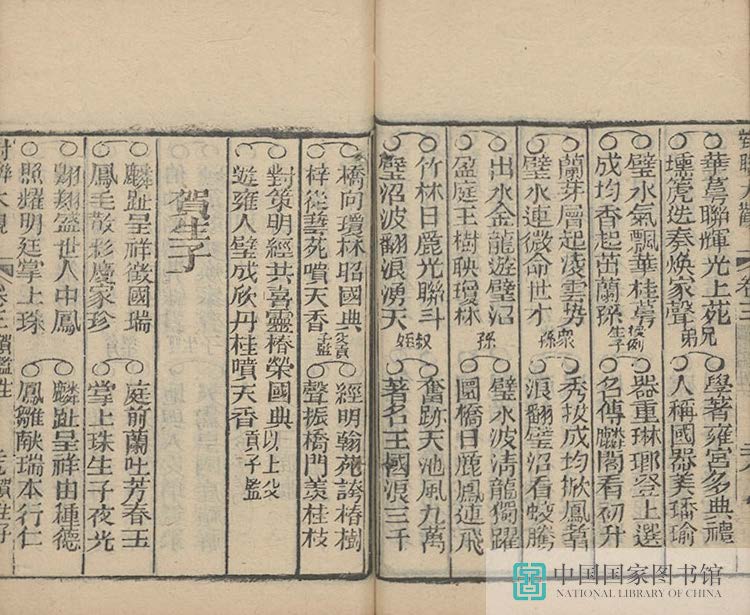 華萼聯輝光上苑兄弟
壎箎迭奏煥家聲
學著雍宮多典禮
人稱國器美璠瑜
璧水氣飄華桂萼
成均香起茁蘭孫生子
器重琳瑯登上選
名傳麟閣看初升
蘭芽層起凌雲勢
璧水連微命世才眾孫
秀拔成均掀鳳翥
浪翻璧沼看蛟騰
出水金龍遊璧沼
盈庭玉樹映瓊林孫
璧水波清龍獨躍
圜橋日麗鳳連飛
竹林日麗光聯斗
璧沼波翻浪湧天叔姪
奮跡天池風九萬
著名王國浪三千
橋向瓊林昭國典
梓從藝苑噴天香父貢子監
經明翰苑誇椿樹
聲振橋門羨桂枝
對策明經共喜靈椿榮國典
遊雍人璧成欣丹桂噴天香以上父貢子監
賀生子
麟趾呈祥徵國瑞
鳳毛散彩慶家珍
庭前蘭吐芳春玉
掌上珠生子夜光
翙翙盛世人中鳳
照耀明廷掌上珠
麟趾呈祥由種德
鳳雛献瑞本行仁
對聯大觀
中国国家图书馆
NATIONAL LIBRARY OF CHINA